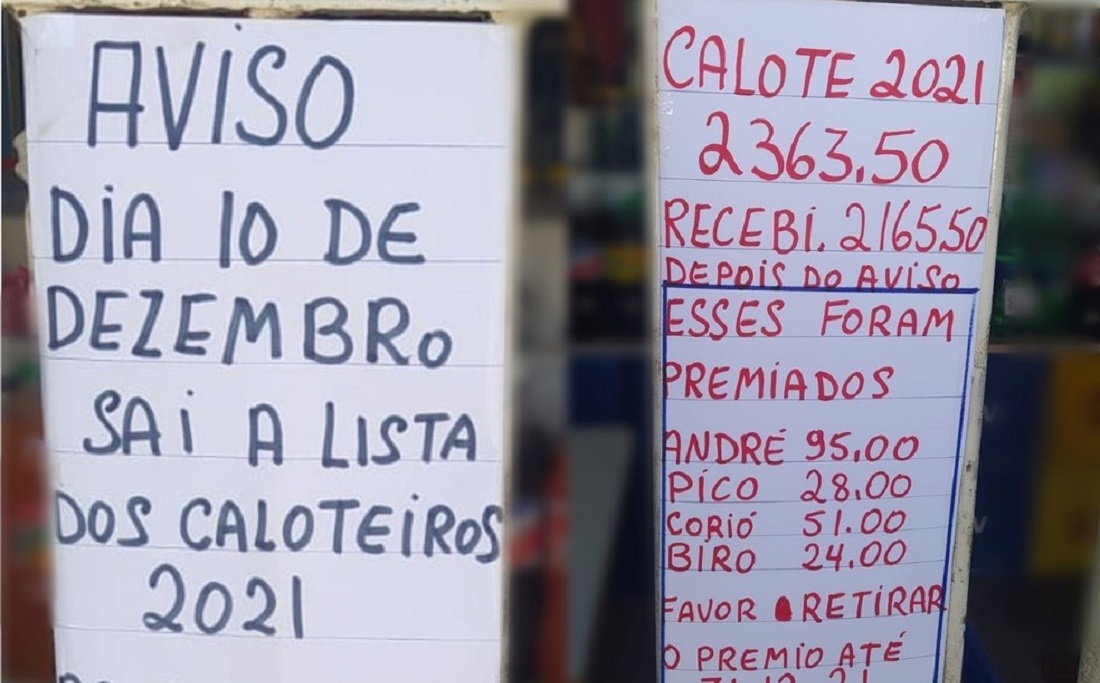 AVISO
DIA 10 DE
DEZEMBRO
SAI A LISTA
DOS CALOTEIROS
2021
CALOTE 2021
2363.50
RECEBI. 2165.50
DEPOIS DO AVISO
ESSES FORAM
PREMIADOS
ANDRÉ 95.00
PICO 28.00
CORIÓ 51.00
BIRO 24.00
FAVOR RETIRAR
O PREMIO ATÉ